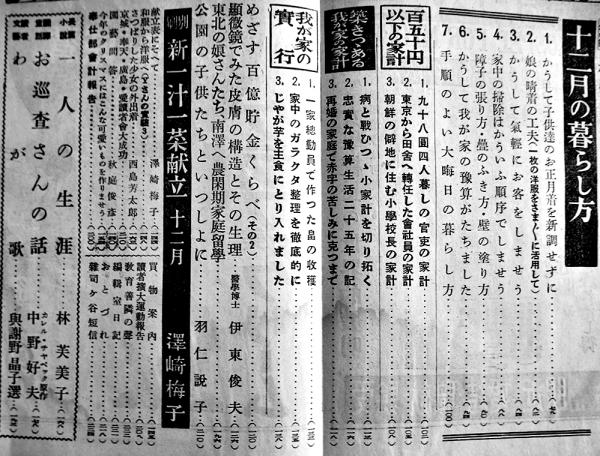 十二月の暮らし方
1. かうして子供達のお正月着を新調せずに
2. 娘の晴着の工夫(一枚の洋服をさま〲に活用して)
3. かうして氣輕にお客をしませう
4. 家中の掃除はかういふ順序でしませう
5. 障子の張り方・疊のふき方・壁の塗り方
6. かうして我が家の豫算がたちました
7. 手順のよい大晦日の暮らし方
百五十円以下の家計
1. 九十八圓四人暮しの官吏の家計
2. 東京から田舍へ轉任した會社員の家計
3. 朝鮮の僻地に住む小學校長の家計
築きつゝある我が家の家計
1. 病と戰ひつゝ小家計を切り拓く
2. 忠實な豫算生活二十五年の記
3. 再婚の家庭で赤字の苦しみに克つまで
我が家の實行
1. 一家總動員で作つた品の收穫
2. 家中のガラクタ整理を徹底的に
3. じやが芋を主食にとり入れました
めざす百億貯金くらべ(その2)
顯微鏡でみた皮膚の構造とその生理 醫學博士 伊東俊夫
東北の娘さんたち、南澤へ農閑期家庭留學
公園の子供たちといつしよに 羽仁説子
新一汁一菜献立 十二月 澤崎梅子
献立表にそへて 澤崎梅子
和服から洋服へ(Yさんの實驗3)
さつぱりした少女の外出着 西島芳太郎
京都・廣島・愛讀者會大成功
園藝問答 秋庭俊彦
今年のクリスマスにはこんな可愛いものを作りませう
奉仕部會計報告
買物案内
讀者擴大運動報告
教育善隣の聲
編輯室日記
おとづれ
雜司ケ谷短信
長篇小説 一人の生涯 林芙美子
お巡査さんの話 カレル・チヤペツク原作 中野好夫
わが歌 與謝野晶子選